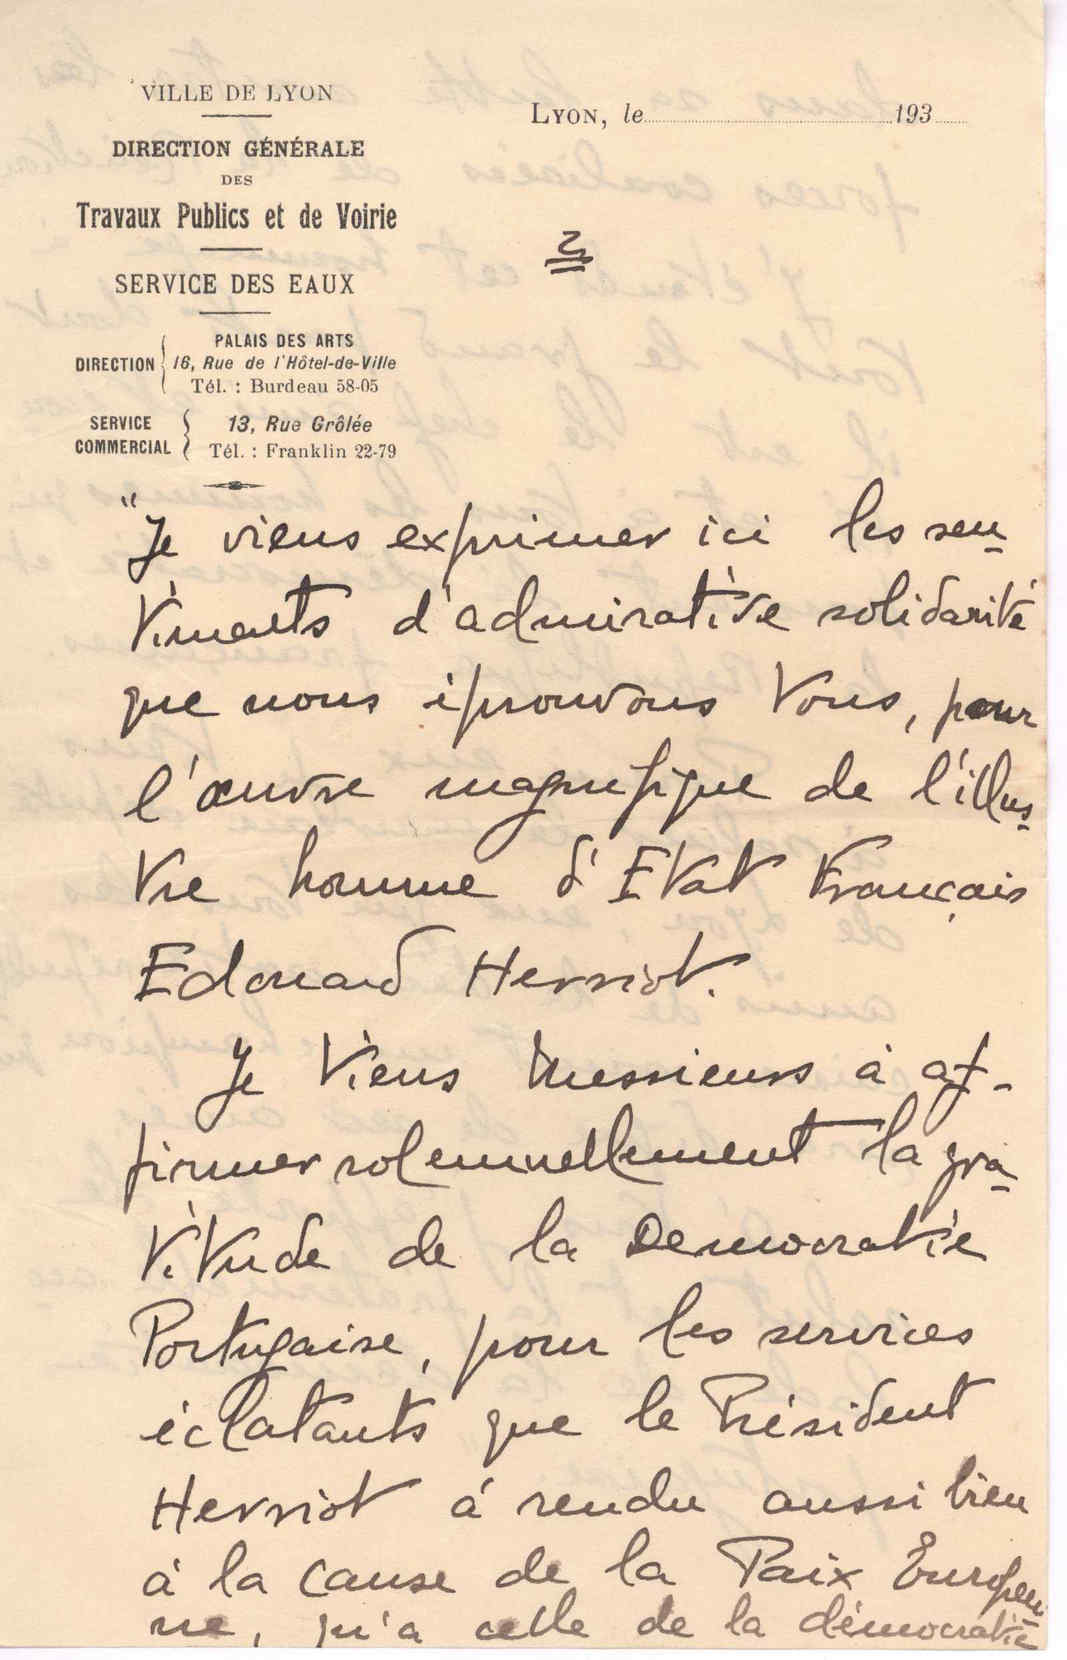 VILLE DE LYON
DIRECTION GÉNÉRALE
DES
Travaux Publics et de Voirie
SERVICE DES EAUX
DIRECTION
PALAIS DES ARTS
16, Rue de l'Hôtel-de-Ville
Tél. : Burdeau 58-05
SERVICE
COMMERCIAL
13, Rue Grôlée
Tél. : Franklin 22-79
LYON, le 193
2
"Je viens exprimer ici les sen-
timents d'admirative solidarité
que nous éprouvons tous, pour
l'œuvre magnifique de l'illus-
tre homme d'Etat Français
Edouard Herriot.
Je viens Messieurs à af-
firmer solennellement la gra-
titude de la Democratie
Portugaise, pour les services
éclatants que le Président
Herriot à rendu aussi bien
à la cause de la Paix Européen-
ne, qu'a celle de la démocratie